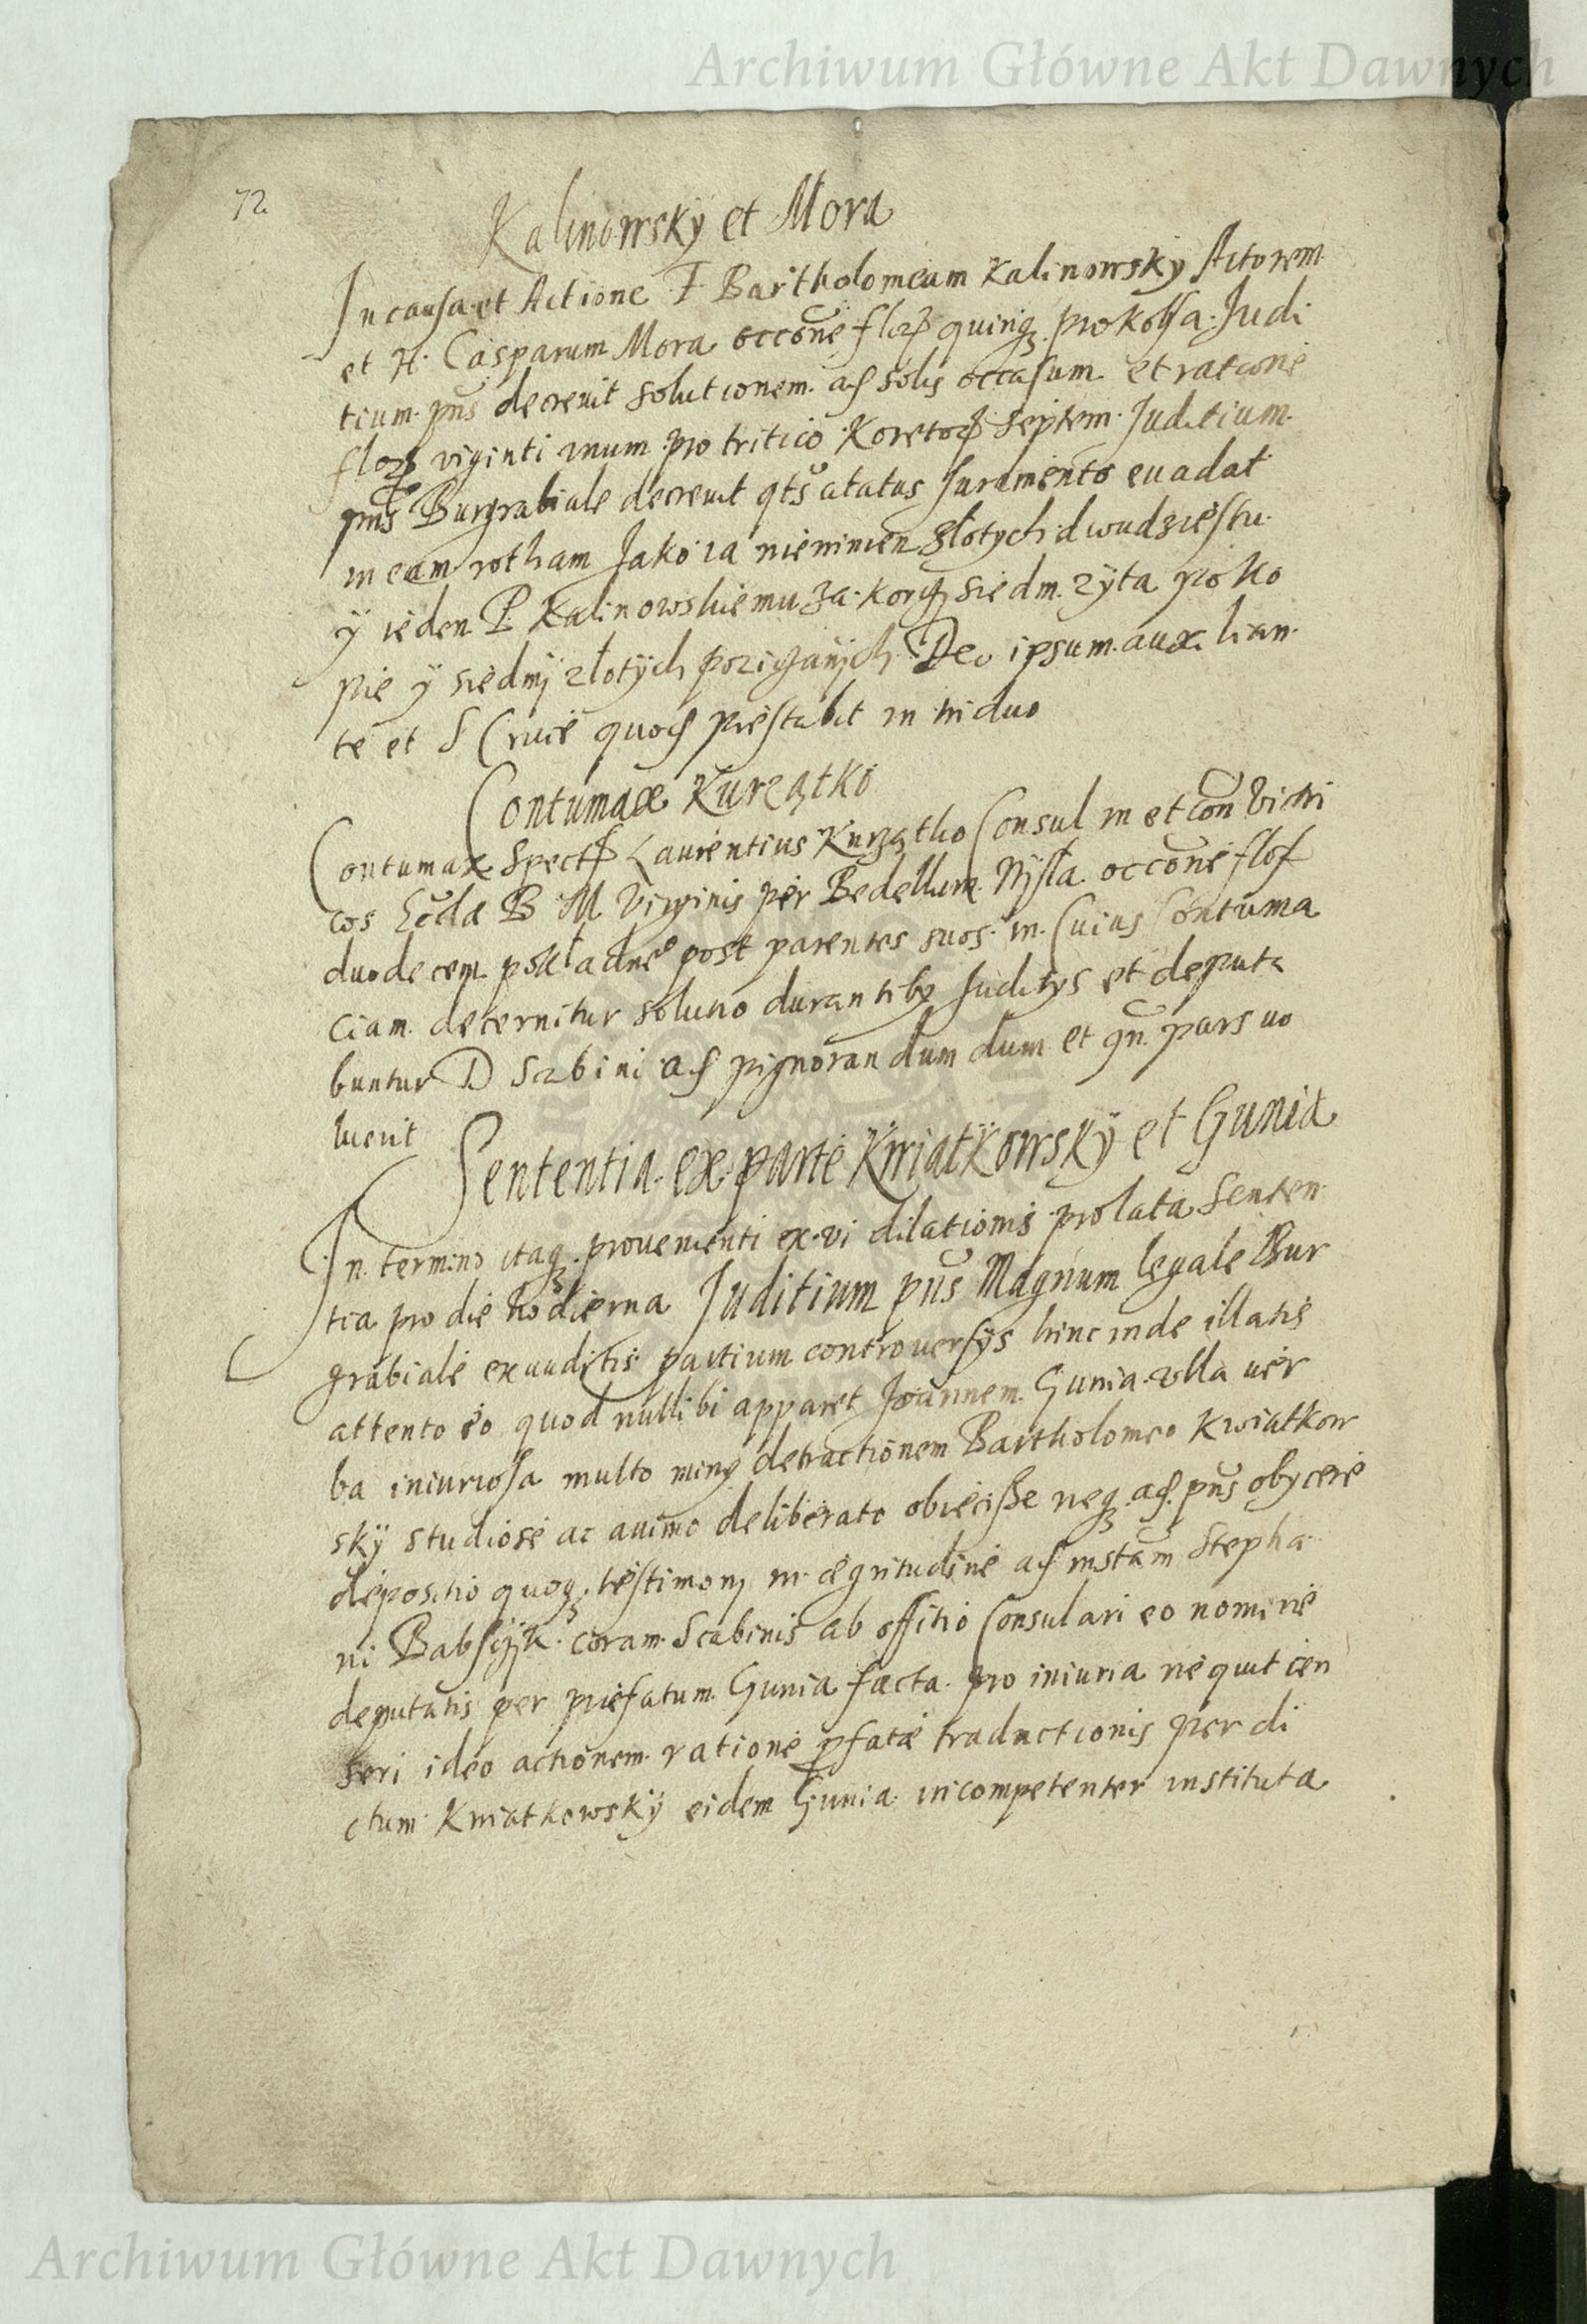 Archiwum Główne Akt Dawnych
72
Kalinowsky et Mora
In causa et Actione F Bartholomeum Kalinowsky Actorem
et H. Casparum Mora occōne flor quinq prokolsa Judi
tium pns decrevit solutionem ad solis occasum et ratione
flor viginti unum pro tritico Koretor septem Juditium
pns Burgrabiale decrevit qts atatus Juramento evadat
in eam rotham Jako ia niewinien złotych dwudziestu
ÿ ieden P. Kalinowskiemu za korcy siedm zyta po ko
pie ÿ siedmÿ złotÿch pozicząnÿch Deo ipsum auxilian
te et S Cruce quod prestabit in triduo
Contumax Kurzątko
Contumax Spect Laurentius Kurzątko Consul in et con Vitri
cos Eccla B M Virginis per Bedellum occone flor
duodecem post parentes suos in Cuius Contuma
ciam decernitur solutio durantibq Juditys et deputa
buntur D Scabini ad pignorandum dum et qn pars vo
luerit
Sententia ex parte Kwiatkowskÿ et Gunia
In termino itaq provenienti ex vi dilationis prolata Senten
tia pro die hodierna Juditium pns Magnum legale Bur
grabiale exauditis partium controversÿs hinc inde illatis
attento eo quod nullibi apparet Joannem Gunia ulla ver
ba iniuriosa multo minq detractionem Bartholomeo Kwiatkow
skÿ studiose ac animo deliberato obiecisse neq ad pns obycere
depositio quoq testimonÿ in ægritudine ad instam Stepha
ni Babsczÿk coram Scabinis ab offitio Consulari eo nomine
deputatis per prefatum Gunia facta pro iniuria nequit cen
seri ideo actionem ratione pfatæ traductionis per di
ctum Kwiatkowskÿ eidem Gunia incompetenter instituta
Archiwum Główne Akt Dawnych